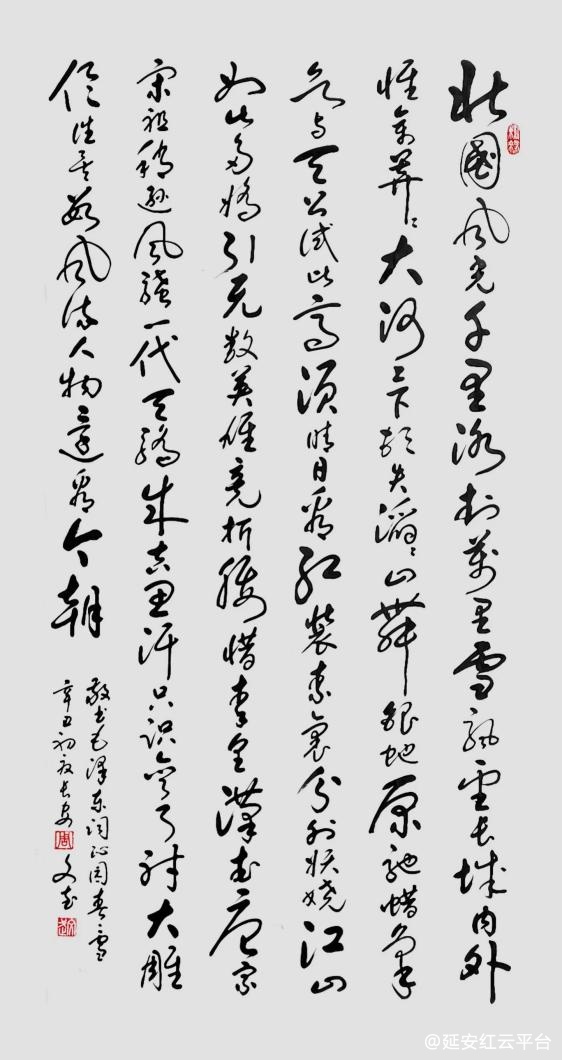 北國風光千里冰封萬里雪飄望長城內外
惟余莽々大河上下頓失滔々山舞銀蛇原馳蜡象
欲与天公试比高须晴日看红装素裹分外妖娆江山
如此多娇引无数英雄竞折腰惜秦皇漢武唐宗
宋祖稍逊风骚一代天骄成吉思汗只识弯弓射大雕
俱往矣数风流人物還看今朝
敬书毛泽东词沁园春雪
辛丑初夏长安周文武
@延安红云平台